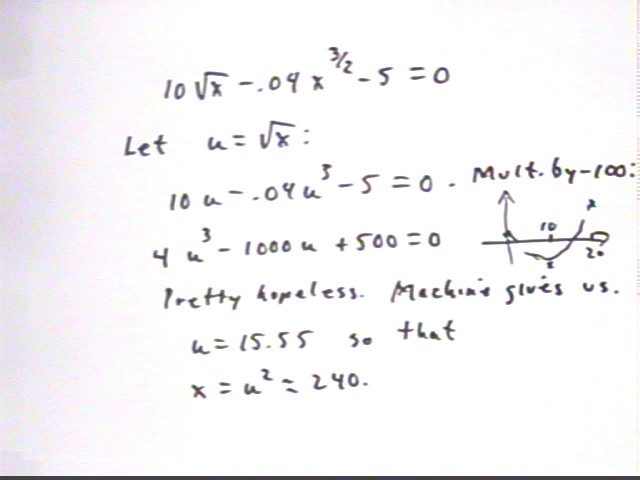 10√x - .04x^3/2 - 5 = 0
Let u = √x:
10u - .04u^3 - 5 = 0. Mult. by -100:
4u^3 - 1000u + 500 = 0
10
20
Pretty hopeless. Machine gives us.
u = 15.55 so that
x = u^2 = 240.